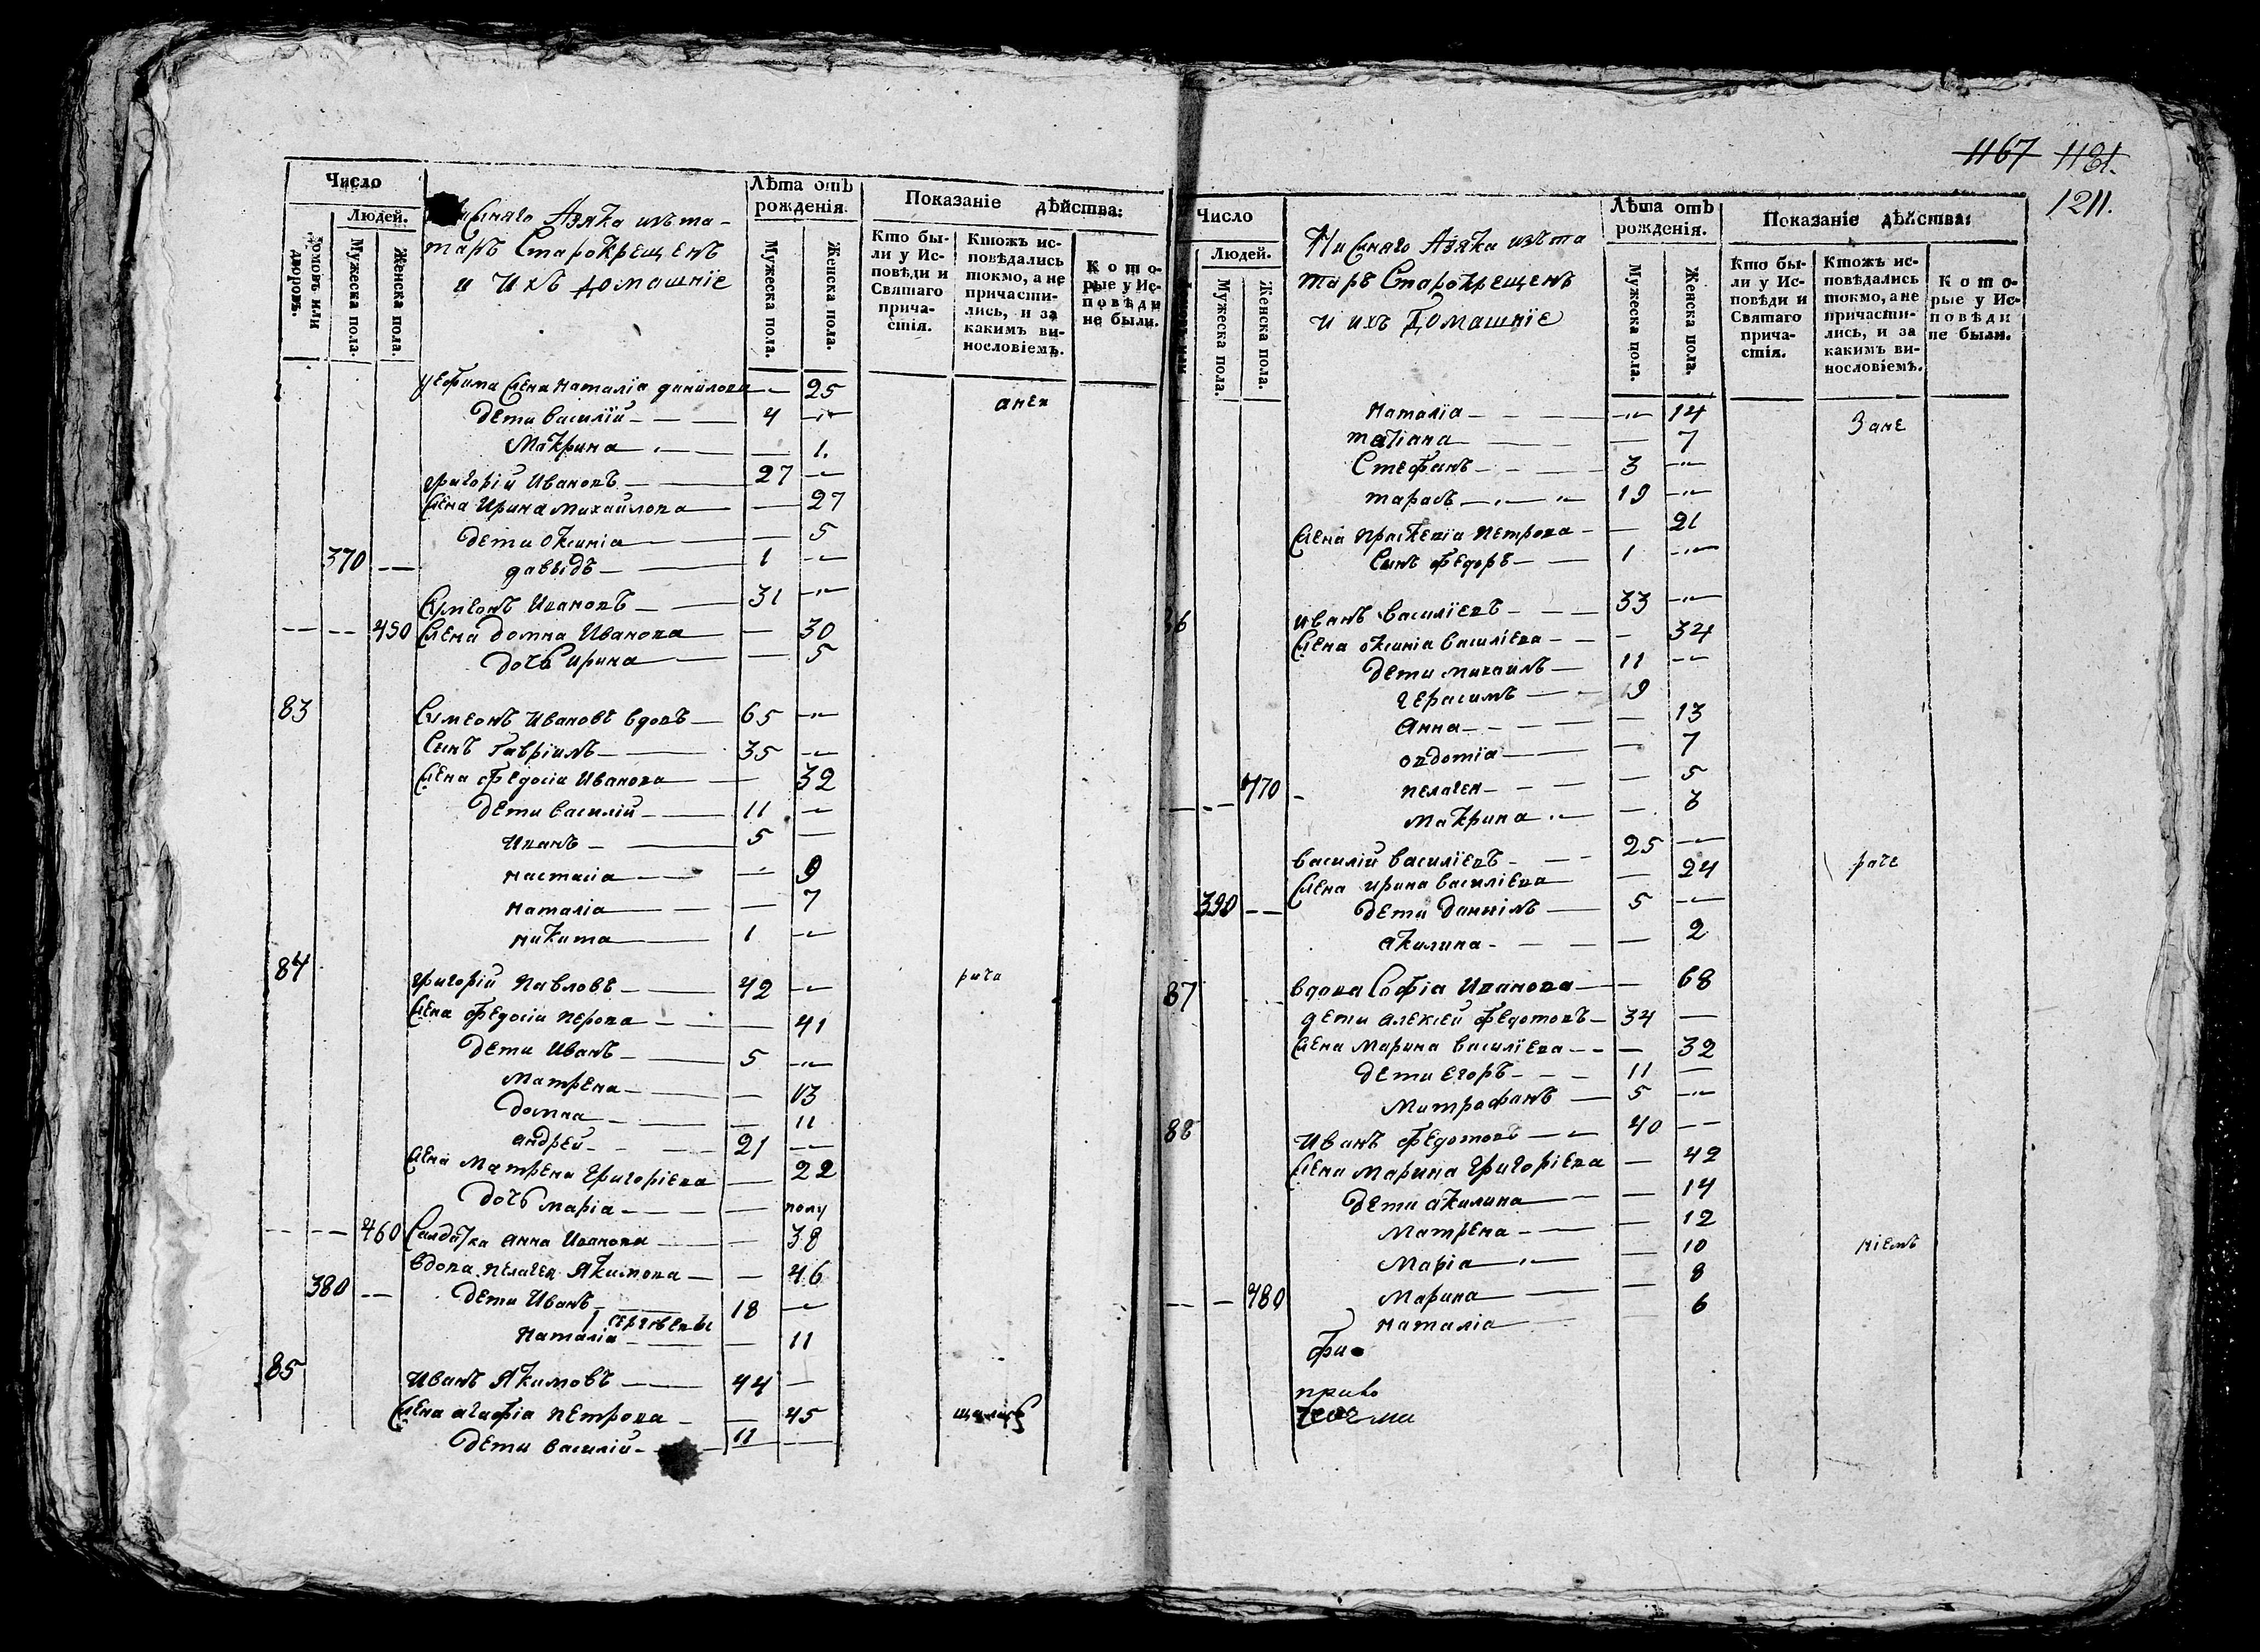 1167 1181.
1211.
Число
Людей.
Домовъ или дворовъ.
Мужеска пола.
Женска пола.
Азяка изъ та-
таръ Старокрещенъ
и ихъ домашнїе
Лѣта отъ рожденія.
Мужеска пола.
Женска пола.
Показаніе дѣйства:
Кто бы-
ли у Ис-
повѣди и
Святаго
прича-
стія.
Ктожъ ис-
повѣдались
токмо, а не
причасти-
лись, и за
какимъ ви-
нословіемъ.
Кото-
рые у Ис-
повѣди
не были.
жена наталїа данилова — 25
дети василїй — 4
Макрина — 1.
григорїй Ивановъ — 27
жена Ирина михайлова — 27
дети оксинїа — 5
370 давыдъ — 1
Сумеонъ Ивановъ — 31
450 жена домна Иванова — 30
дочь ирина — 5
83 Сумеонъ Ивановъ вдовъ — 65
сынъ гаврїилъ — 35
жена федосїа Иванова — 32
дети василїй — 11
Иванъ — 5
настасїа — 9
наталїа — 7
никита — 1
84 григорїй Павловъ — 42
жена федосїа — 41
дети Иванъ — 5
матрена — 13
домна — 11
андрей — 21
жена Матрена григорїева — 22
дочь марїа — полу
460 Салдатка анна Иванова — 38
вдова пелагея Якимова — 46
380 дети Иванъ — 18
наталїа — 11
85 Иванъ Якимовъ — 44
жена агафїа петрова — 45
дети василїй — 11
Число
Людей.
Мужеска пола.
Женска пола.
Нижняго Азяка изъ та
таръ Старокрещенъ
и ихъ домашнїе
Лѣта отъ рожденія.
Мужеска пола.
Женска пола.
Показаніе дѣйства:
Кто бы-
ли у Ис-
повѣди и
Святаго
прича-
стія.
Ктожъ ис-
повѣдались
токмо, а не
причасти-
лись, и за
какимъ ви-
нословіемъ.
Кото-
рые у Ис-
повѣди
не были.
наталїа — 14
татїана — 7
Стефанъ — 3
тарасъ — 19
жена праскевїа петрова — 21
сынъ федоръ — 1
86 иванъ василїевъ — 33
жена оксинїа василїева — 34
дети михаилъ — 11
герасимъ — 9
анна — 13
овдотїа — 7
470 пелагея — 5
макрина — 3
василїй василїевъ — 25
жена ирина василїева — 24
390 дети данїилъ — 5
акилина — 2
87 вдова Софїа Иванова — 68
дети алексей федотовъ — 34
жена марина василїева — 32
дети егоръ — 11
митрофанъ — 5
88 Иванъ федотовъ — 40
жена марина григорїева — 42
дети акилина — 14
матрена — 12
марїа — 10
480 марина — 8
наталїа — 6